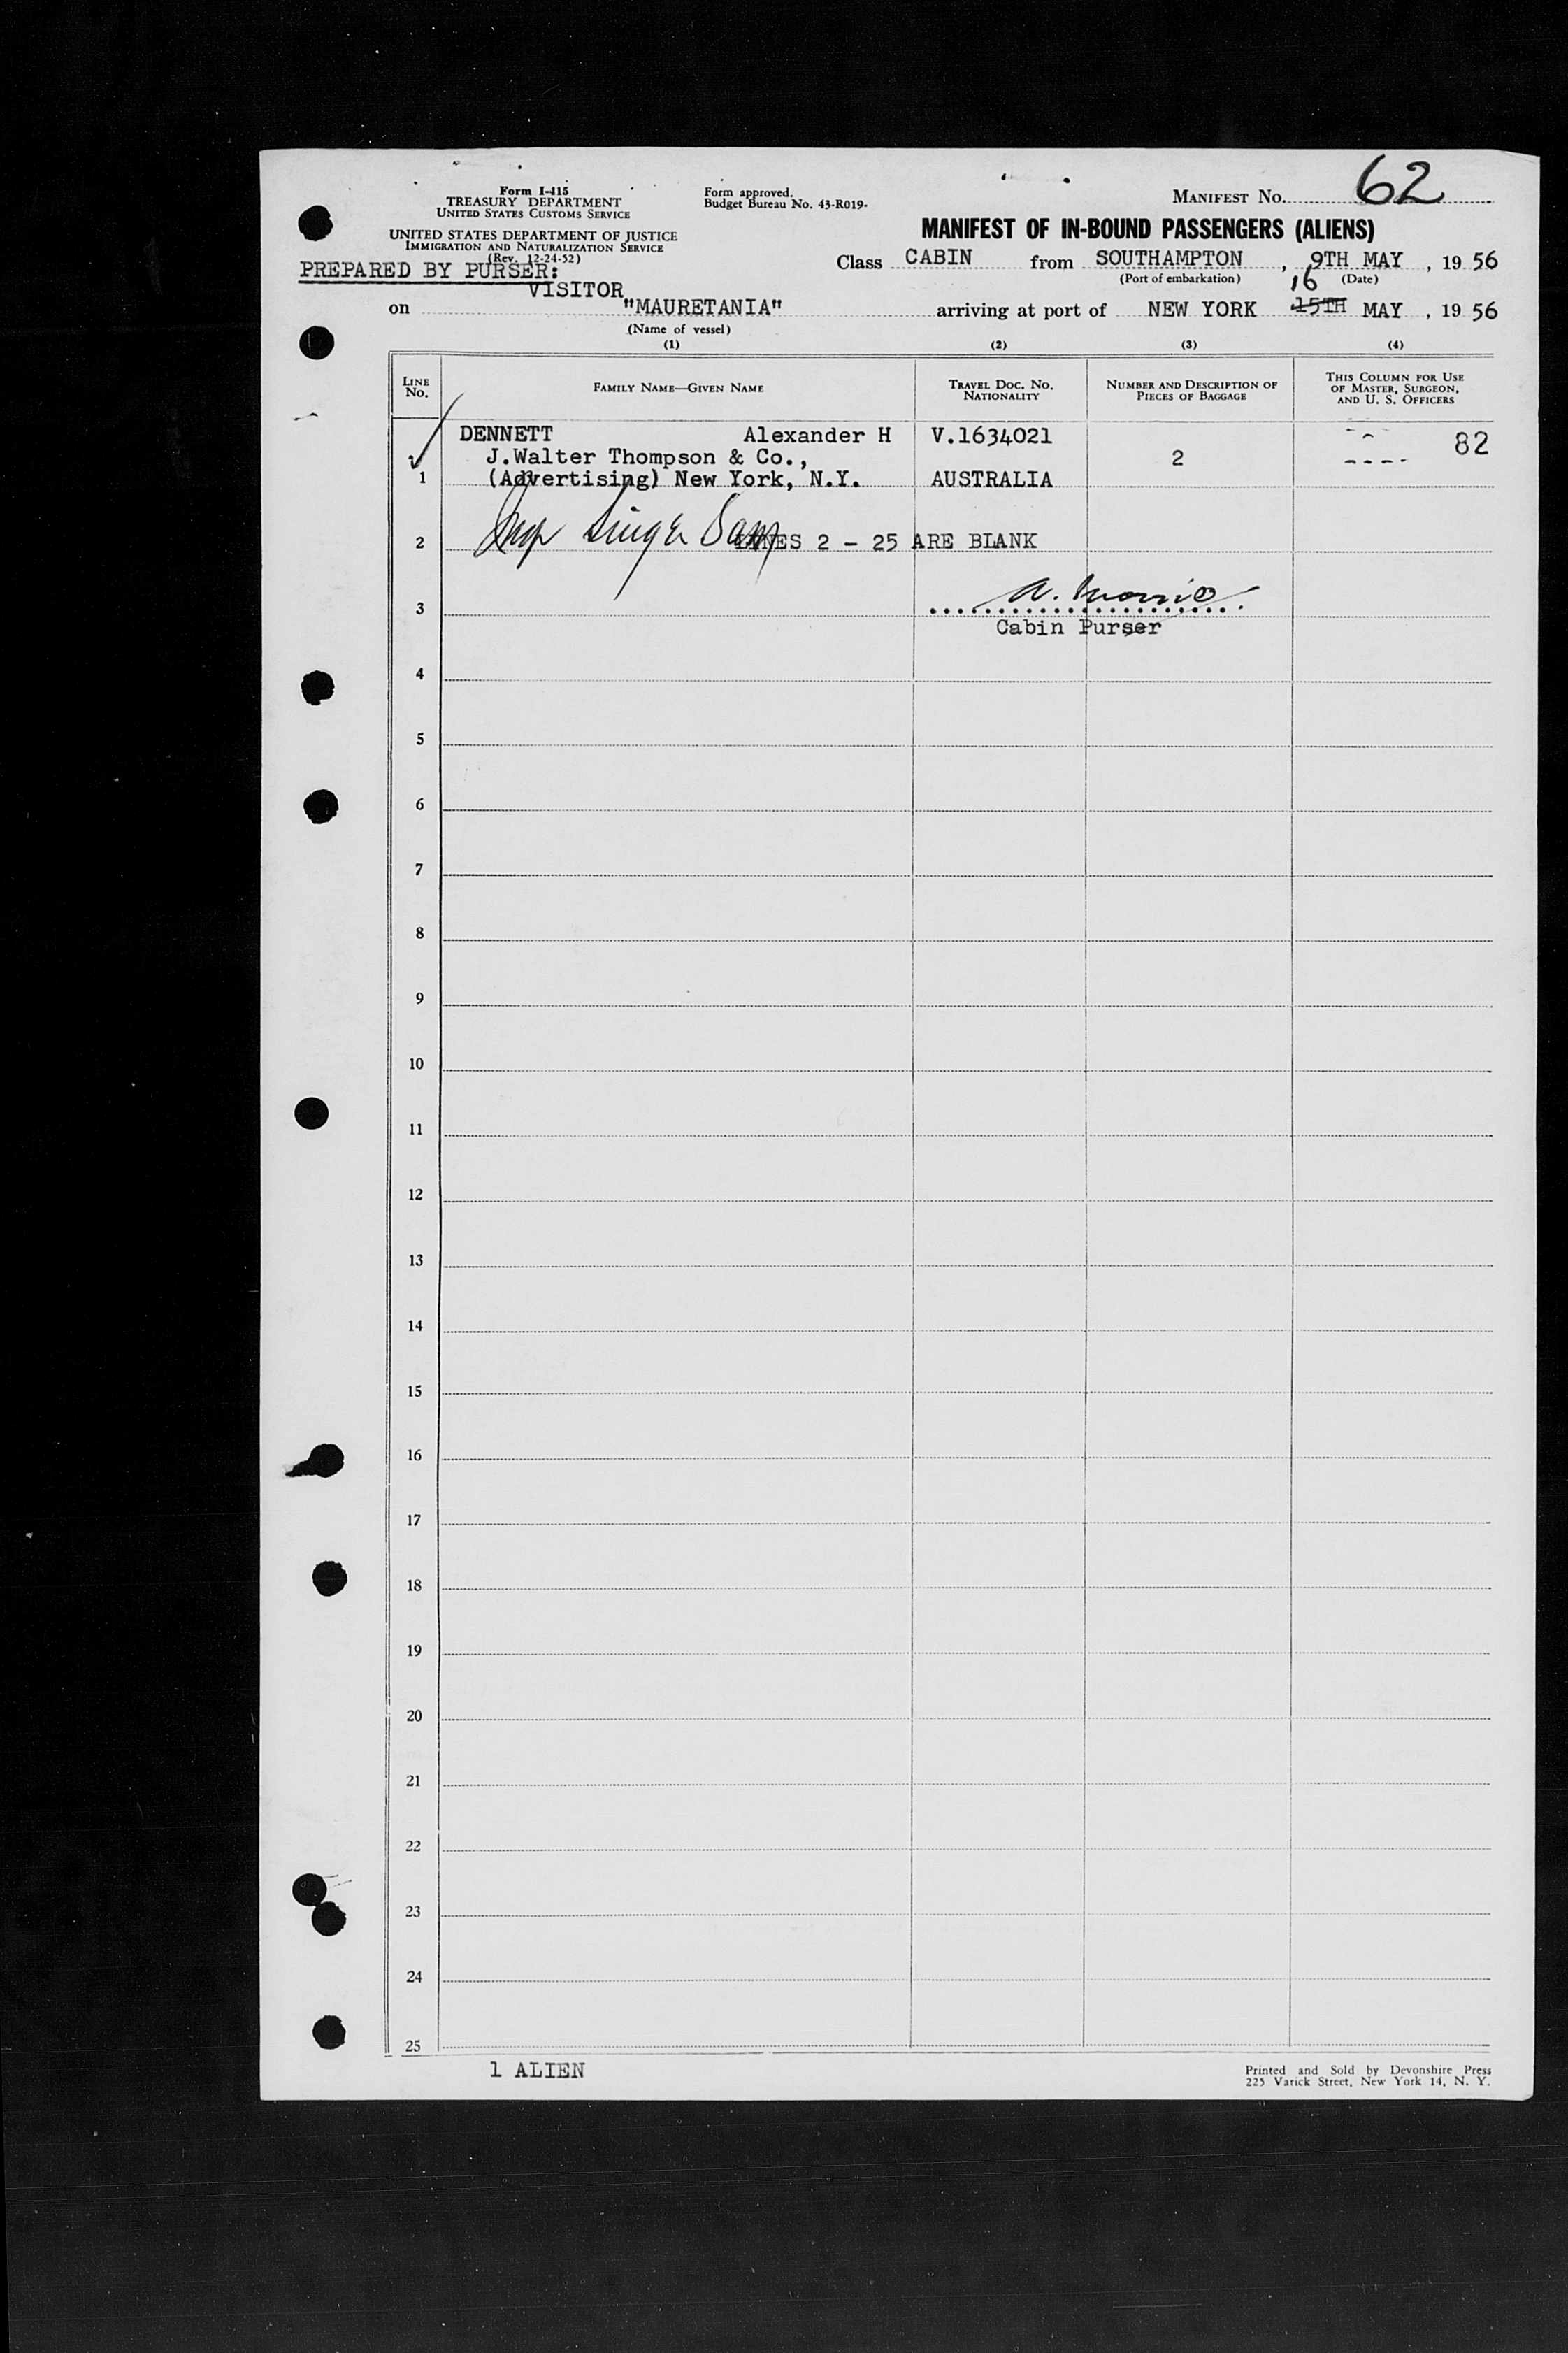 Form I-415
TREASURY DEPARTMENT
UNITED STATES CUSTOMS SERVICE
UNITED STATES DEPARTMENT OF JUSTICE
IMMIGRATION AND NATURALIZATION SERVICE
(Rev. 12-24-52)
Form approved.
Budget Bureau No. 43-R019-
MANIFEST NO. 62
MANIFEST OF IN-BOUND PASSENGERS (ALIENS)
PREPARED BY PURSER:
VISITOR
Class CABIN from SOUTHAMPTON, 9TH MAY, 19 56
(Port of embarkation) (Date)
16
on "MAURETANIA" arriving at port of NEW YORK 15TH MAY, 19 56
(Name of vessel)
(1) (2) (3) (4)
LINE NO. FAMILY NAME—GIVEN NAME TRAVEL DOC. NO. NATIONALITY NUMBER AND DESCRIPTION OF PIECES OF BAGGAGE THIS COLUMN FOR USE OF MASTER, SURGEON, AND U. S. OFFICERS
DENNETT Alexander H V.1634021 82
J.Walter Thompson & Co., 2
1 (Advertising) New York, N.Y. AUSTRALIA
2 LINES 2 - 25 ARE BLANK
3
Cabin Purser
4
5
6
7
8
9
10
11
12
13
14
15
16
17
18
19
20
21
22
23
24
25
1 ALIEN
Printed and Sold by Devonshire Press
225 Varick Street, New York 14, N. Y.